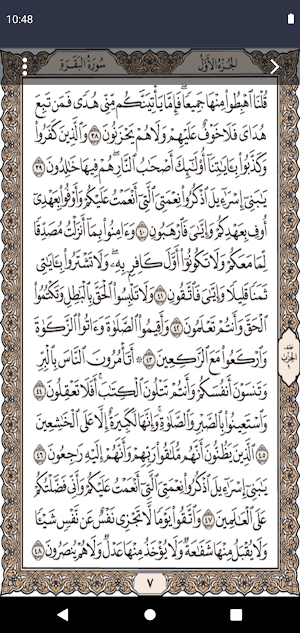 10:48
سُورَةُ البَقَرَةِ الجُزْءُ الأَوَّلُ
قُلْنَا ٱهْبِطُوا۟ مِنْهَا جَمِيعًا ۖ فَإِمَّا يَأْتِيَنَّكُم مِّنِّى هُدًى فَمَن تَبِعَ
هُدَاىَ فَلَا خَوْفٌ عَلَيْهِمْ وَلَا هُمْ يَحْزَنُونَ ٣٨ وَٱلَّذِينَ كَفَرُوا۟
وَكَذَّبُوا۟ بِـَٔايَـٰتِنَآ أُو۟لَـٰٓئِكَ أَصْحَـٰبُ ٱلنَّارِ ۖ هُمْ فِيهَا خَـٰلِدُونَ ٣٩
يَـٰبَنِىٓ إِسْرَٰٓءِيلَ ٱذْكُرُوا۟ نِعْمَتِىَ ٱلَّتِىٓ أَنْعَمْتُ عَلَيْكُمْ وَأَوْفُوا۟ بِعَهْدِىٓ
أُوفِ بِعَهْدِكُمْ وَإِيَّـٰىَ فَٱرْهَبُونِ ٤٠ وَءَامِنُوا۟ بِمَآ أَنزَلْتُ مُصَدِّقًا
لِّمَا مَعَكُمْ وَلَا تَكُونُوٓا۟ أَوَّلَ كَافِرٍۭ بِهِۦ ۖ وَلَا تَشْتَرُوا۟ بِـَٔايَـٰتِى
ثَمَنًا قَلِيلًا وَإِيَّـٰىَ فَٱتَّقُونِ ٤١ وَلَا تَلْبِسُوا۟ ٱلْحَقَّ بِٱلْبَـٰطِلِ وَتَكْتُمُوا۟
ٱلْحَقَّ وَأَنتُمْ تَعْلَمُونَ ٤٢ وَأَقِيمُوا۟ ٱلصَّلَوٰةَ وَءَاتُوا۟ ٱلزَّكَوٰةَ
وَٱرْكَعُوا۟ مَعَ ٱلرَّٰكِعِينَ ٤٣ ۞ أَتَأْمُرُونَ ٱلنَّاسَ بِٱلْبِرِّ
وَتَنسَوْنَ أَنفُسَكُمْ وَأَنتُمْ تَتْلُونَ ٱلْكِتَـٰبَ ۚ أَفَلَا تَعْقِلُونَ ٤٤
وَٱسْتَعِينُوا۟ بِٱلصَّبْرِ وَٱلصَّلَوٰةِ ۚ وَإِنَّهَا لَكَبِيرَةٌ إِلَّا عَلَى ٱلْخَـٰشِعِينَ
٤٥ ٱلَّذِينَ يَظُنُّونَ أَنَّهُم مُّلَـٰقُوا۟ رَبِّهِمْ وَأَنَّهُمْ إِلَيْهِ رَٰجِعُونَ ٤٦
يَـٰبَنِىٓ إِسْرَٰٓءِيلَ ٱذْكُرُوا۟ نِعْمَتِىَ ٱلَّتِىٓ أَنْعَمْتُ عَلَيْكُمْ وَأَنِّى فَضَّلْتُكُمْ
عَلَى ٱلْعَـٰلَمِينَ ٤٧ وَٱتَّقُوا۟ يَوْمًا لَّا تَجْزِى نَفْسٌ عَن نَّفْسٍ شَيْـًٔا
وَلَا يُقْبَلُ مِنْهَا شَفَـٰعَةٌ وَلَا يُؤْخَذُ مِنْهَا عَدْلٌ وَلَا هُمْ يُنصَرُونَ ٤٨
الحِزْب
٧